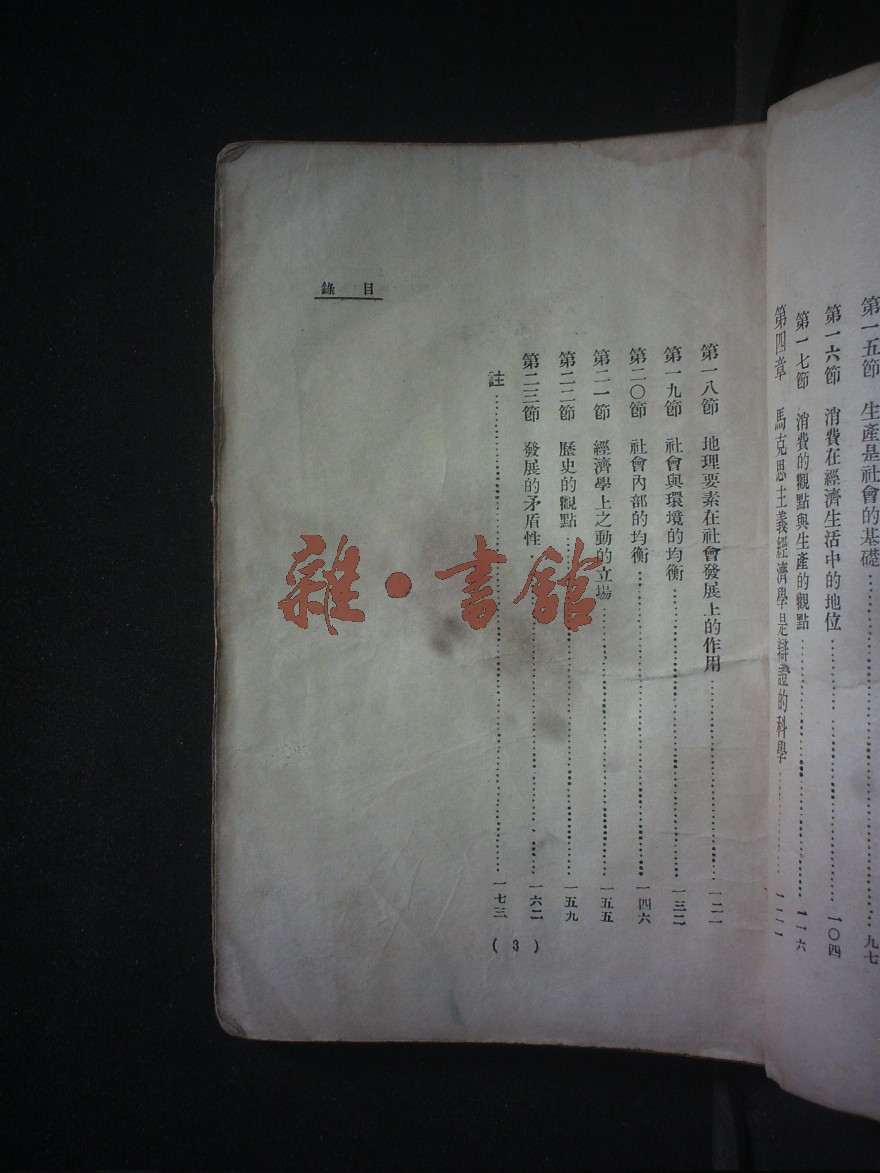 第一五節　生產是社會的基礎……九七
第一六節　消費在經濟生活中的地位……一〇四
第一七節　消費的觀點與生產的觀點……一一六
第四章　馬克思主義經濟學是辯證的科學……一二一
錄目
第一八節　地理要素在社會發展上的作用……一二一
第一九節　社會與環境的均衡……一三二
第二〇節　社會內部的均衡……一四六
第二一節　經濟學上之動的立場……一五五
第二二節　歷史的觀點……一五九
第二三節　發展的矛盾性……一六二
註……一七三
(3)
雜·書館